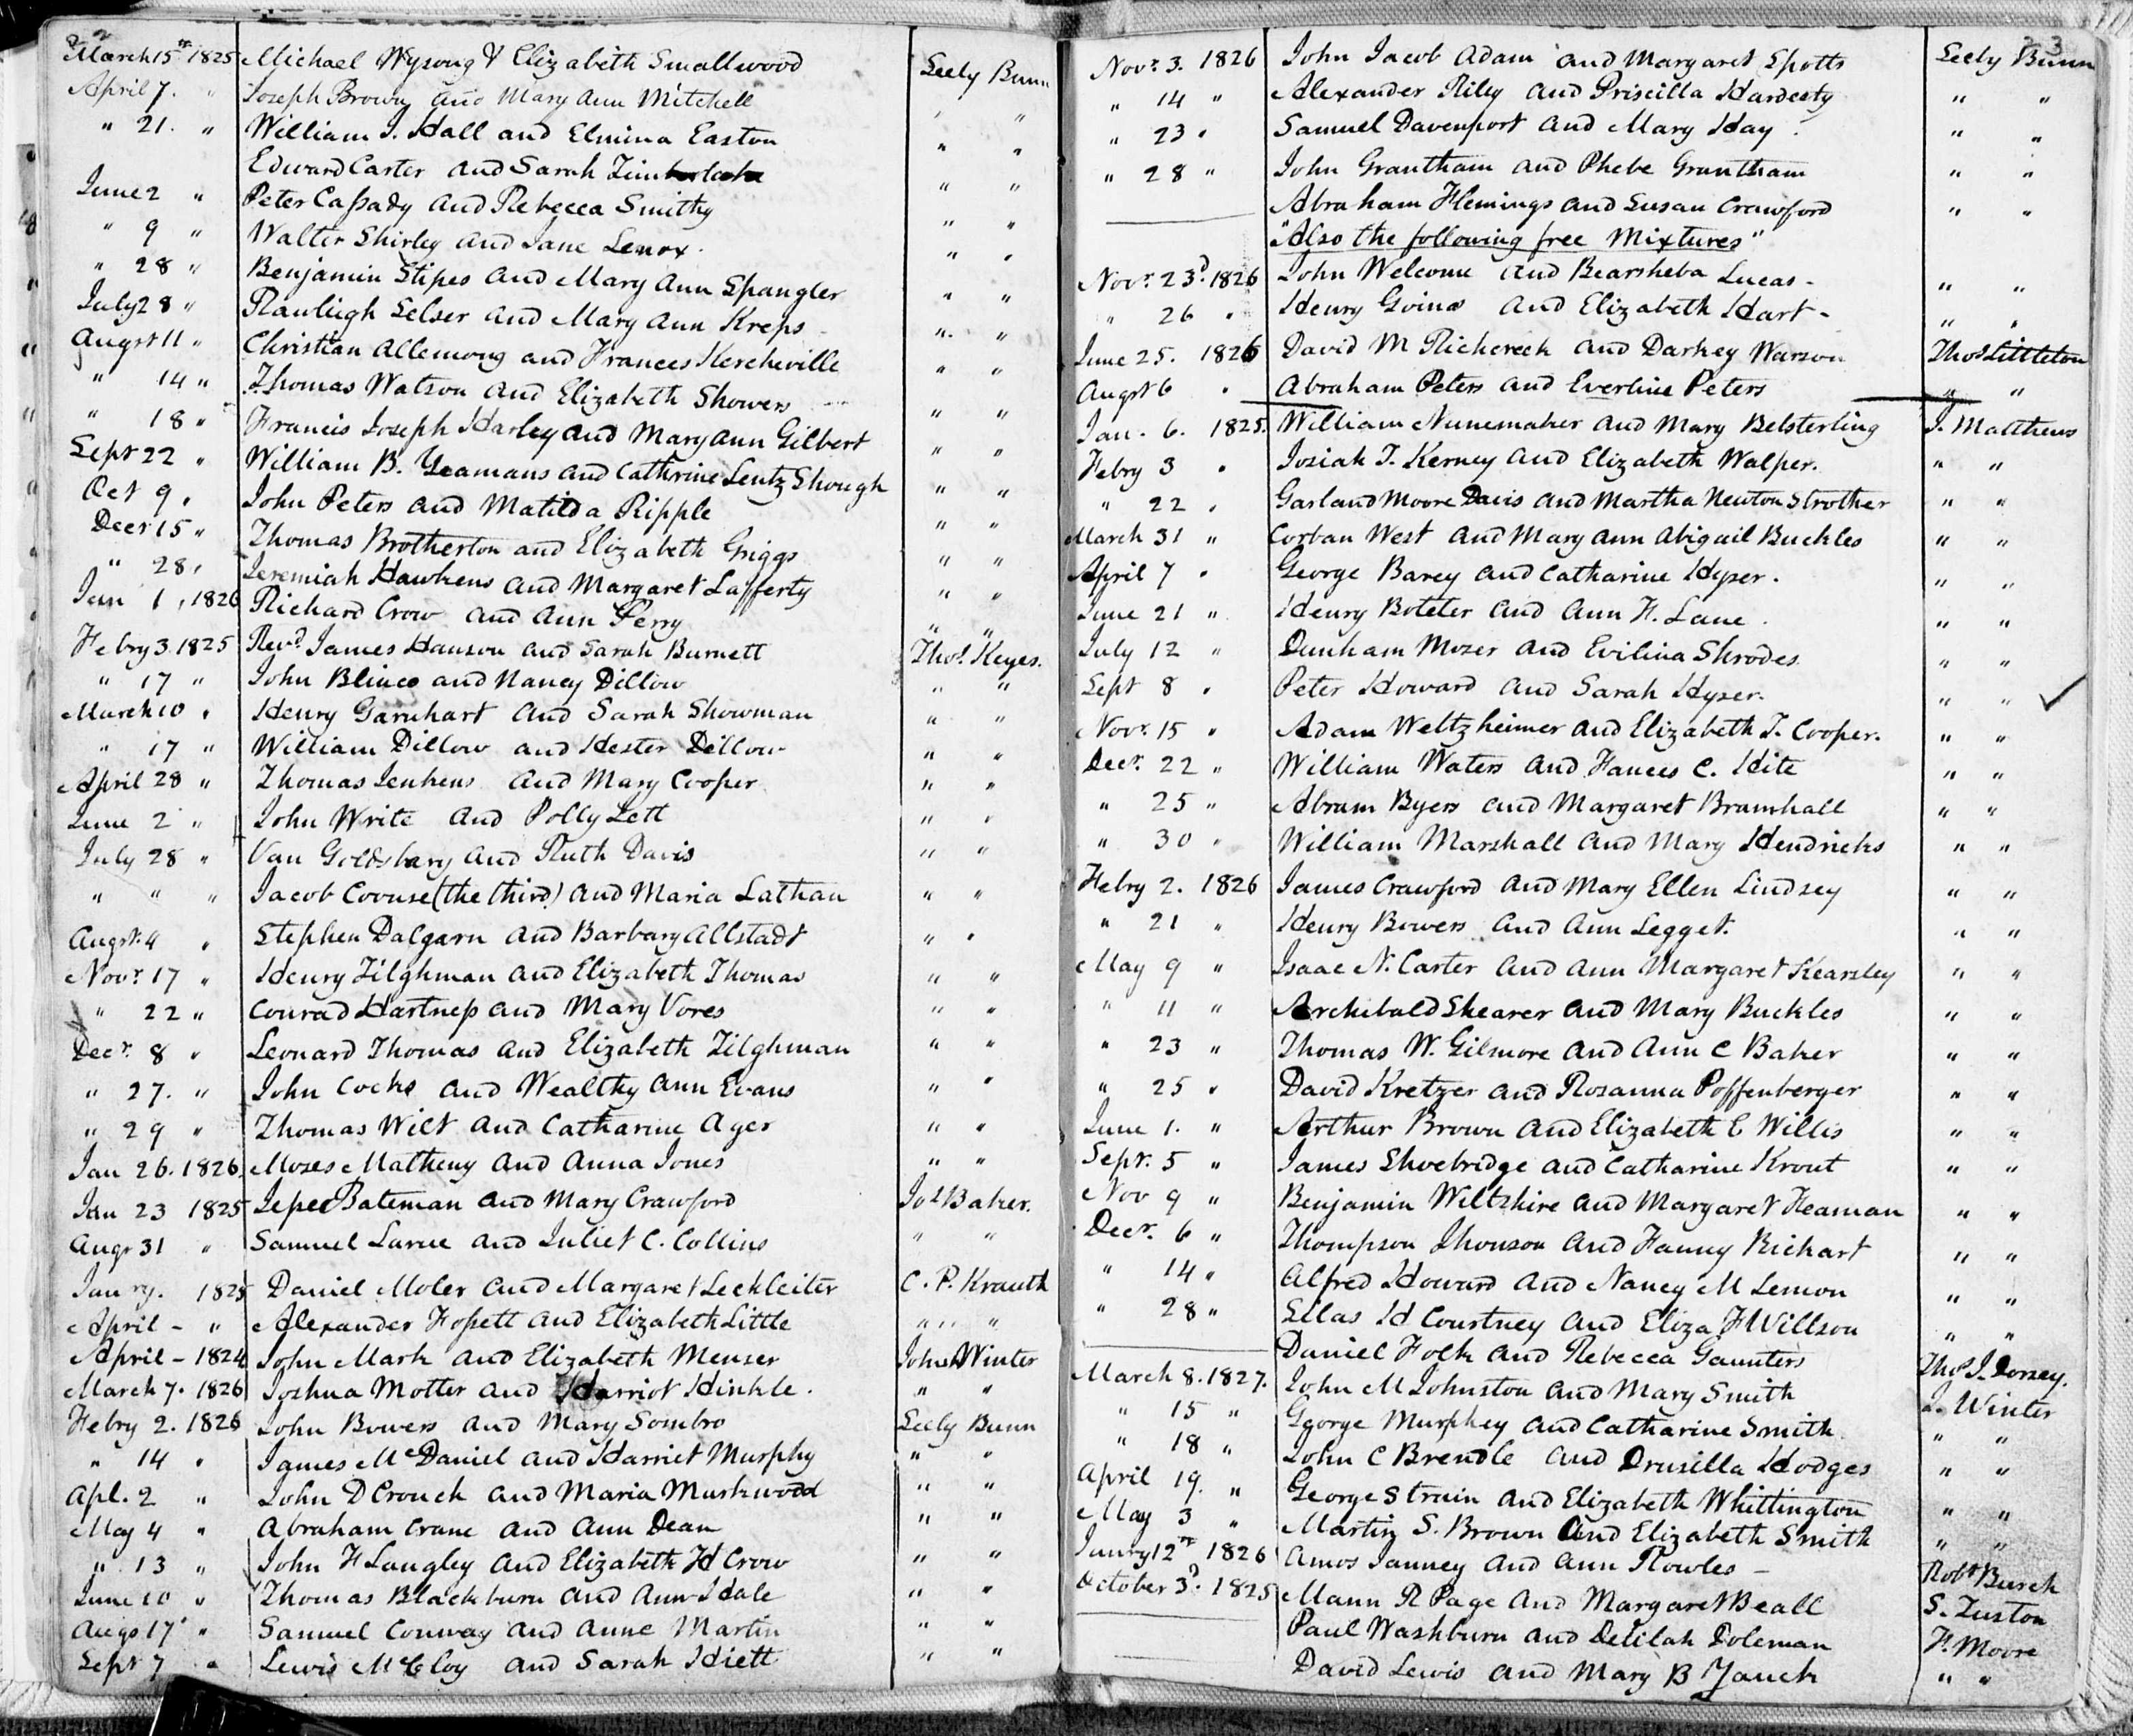 22
March 15th 1825 Michael Wysong & Elizabeth Smallwood Seely Bunn
April 7. " Joseph Brown and Mary Ann Mitchell " "
" 21. " William J. Hall and Elmina Easton " "
Edward Carter and Sarah Timberlake " "
June 2 " Peter Cassady and Rebecca Smithy " "
" 9 " Walter Shirley and Jane Lenox. " "
" 28 " Benjamin Stipes and Mary Ann Spangler " "
July 28 " Rawleigh Selser and Mary Ann Kreps " "
Augst 11 " Christian Allemong and Frances Kercheville " "
" 14 " Thomas Watson and Elizabeth Showers " "
" 18 " Francis Joseph Harley and Mary Ann Gilbert " "
Sept 22 " William B. Yeamans and Cathrine Lentz Shough " "
Oct 9 " John Peters and Matilda Ripple " "
Decr 15 " Thomas Brotherton and Elizabeth Griggs " "
" 28 " Jeremiah Hawkens and Margaret Lafferty " "
Jan 1, 1826 Richard Crow and Ann Perry " "
Febry 3. 1825 Revd. James Hanson and Sarah Burnett Thos. Keyes.
" 17 " John Blinco and Nancy Dillow " "
March 10 " Henry Garnhart and Sarah Showman " "
" 17 " William Dillow and Hester Dillow " "
April 28 " Thomas Jenkens and Mary Cooper " "
June 2 " John Write and Polly Lett " "
July 28 " Van Goldsbary and Ruth Davis " "
" " " Jacob Coouse (the third) and Maria Lathan " "
Augst. 4 " Stephen Dalgarn and Barbary Allstadt " "
Novr. 17 " Henry Tilghman and Elizabeth Thomas " "
" 22 " Conrad Hartness and Mary Vores " "
Decr. 8 " Leonard Thomas and Elizabeth Tilghman " "
" 27. " John Cocke and Wealthy Ann Evans " "
" 29 " Thomas Wilt and Catharine Ager " "
Jan 26. 1826. Moses Matheny and Anna Jones " "
Jan 23 1825 Jessee Bateman and Mary Crawford Jos Baker.
Augt 31 " Samuel Larue and Juliet C. Collins " "
Janry. 1825 Daniel Moler and Margaret Leckleiter C. P. Krauth
April - " Alexander Fossett and Elizabeth Little " "
April - 1824 John Mark and Elizabeth Menser John Winter
March 7. 1826 Joshua Motter and Harriot Hinkle. " "
Febry 2. 1826 John Bowers and Mary Sombro Seely Bunn
" 14 " James McDaniel and Harriet Murphy " "
Apl. 2 " John D Crouch and Maria Muskwood " "
May 4 " Abraham Crane and Ann Dean " "
" 13 " John F Langley and Elizabeth H Crow " "
June 10 " Thomas Blackburn and Ann Hale " "
Augs 17 " Samuel Conway and Anne Martin " "
Sept 7 " Lewis McCloy and Sarah Hiett " "
23
Novr. 3. 1826 John Jacob Adam and Margaret Spotts Seely Bunn
" 14 " Alexander Riley and Priscilla Hardesty " "
" 23 " Samuel Davenport and Mary Hay. " "
" 28 " John Grantham and Phebe Grantham " "
Abraham Flemings and Susan Crawford " "
"Also the following free Mixtures"
Novr. 23d. 1826 John Welcome and Bearsheba Lucas - " "
" 26 " Henry Goins and Elizabeth Hart - " "
June 25. 1826 David M Richereck and Darkey Warson Thos Littleton
Augst 6 " Abraham Peters and Everline Peters " "
Jan. 6. 1825. William Nunemaker and Mary Belsterling J. Matthews
Febry 3 " Josiah T. Kerney and Elizabeth Walper. " "
" 22 " Garland Moore Davis and Martha Newton Strother " "
March 31 " Corban West and Mary Ann Abigail Buckles " "
April 7 " George Barey and Catharine Hyser. " "
June 21 " Henry Boteler and Ann H. Lane. " "
July 12 " Dunham Mozer and Evilina Shrodes " "
Sept 8 " Peter Howard and Sarah Hyser. " "
Novr. 15 " Adam Weltzheimer and Elizabeth T. Cooper. " "
Decr. 22 " William Waters and Fances C. Hite " "
" 25 " Abram Byers and Margaret Bramhall " "
" 30 " William Marshall and Mary Hendricks " "
Febry 2. 1826 James Crawford and Mary Ellen Lindsey " "
" 21 " Henry Bowers and Ann Legget. " "
May 9 " Isaac N. Carter and Ann Margaret Kearsley " "
" 11 " Archibald Shearer and Mary Buckles " "
" 23 " Thomas W. Gilmore and Ann C Baker " "
" 25 " David Kretzer and Rosanna Poffenberger " "
June 1. " Arthur Brown and Elizabeth C Willis " "
Sept. 5 " James Shoebridge and Catharine Krout " "
Nov 9 " Benjamin Wiltshire and Margaret Feaman " "
Decr. 6 " Thompson Jhonson and Fanny Richart " "
" 14 " Alfred Howard and Nancy M Lemon " "
" 28 " Silas H Courtney and Eliza F Willson " "
Daniel Folk and Rebecca Gaunters Thos J. Dorsey.
March 8. 1827. John M Johnston and Mary Smith J. Winter
" 15 " George Murphey and Catharine Smith " "
" 18 " John C Brendle and Drusilla Hodges " "
April 19. " George Strain and Elizabeth Whittington " "
May 3 " Martin S. Brown And Elizabeth Smith " "
Janry 12th 1826 Amos Janney and Ann Rowles - Robt Burch
October 3d. 1825 Mann R Page and Margaret Beall S. Tuston
Paul Washburn and Delilah Doleman F. Moore
David Lewis and Mary B Yauck " "